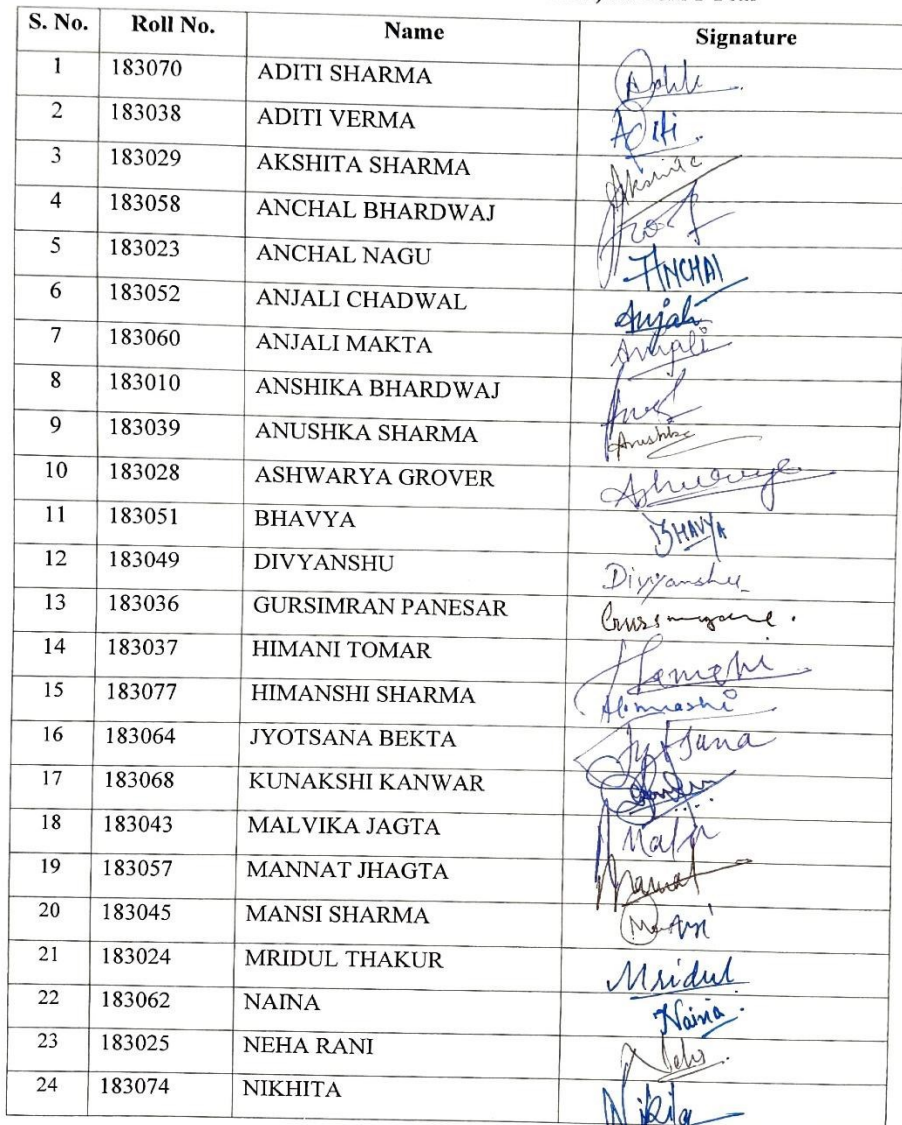 S. No. Roll No. Name Signature
1 183070 ADITI SHARMA
2 183038 ADITI VERMA Aditi
3 183029 AKSHITA SHARMA Akshita
4 183058 ANCHAL BHARDWAJ
5 183023 ANCHAL NAGU ANCHAl
6 183052 ANJALI CHADWAL Anjali
7 183060 ANJALI MAKTA Anjali
8 183010 ANSHIKA BHARDWAJ
9 183039 ANUSHKA SHARMA Anushka
10 183028 ASHWARYA GROVER
11 183051 BHAVYA BHAVYA
12 183049 DIVYANSHU Divyanshu
13 183036 GURSIMRAN PANESAR
14 183037 HIMANI TOMAR
15 183077 HIMANSHI SHARMA Himanshi
16 183064 JYOTSANA BEKTA Jyotsana
17 183068 KUNAKSHI KANWAR
18 183043 MALVIKA JAGTA
19 183057 MANNAT JHAGTA
20 183045 MANSI SHARMA Mansi
21 183024 MRIDUL THAKUR Mridul
22 183062 NAINA Naina
23 183025 NEHA RANI Neha
24 183074 NIKHITA